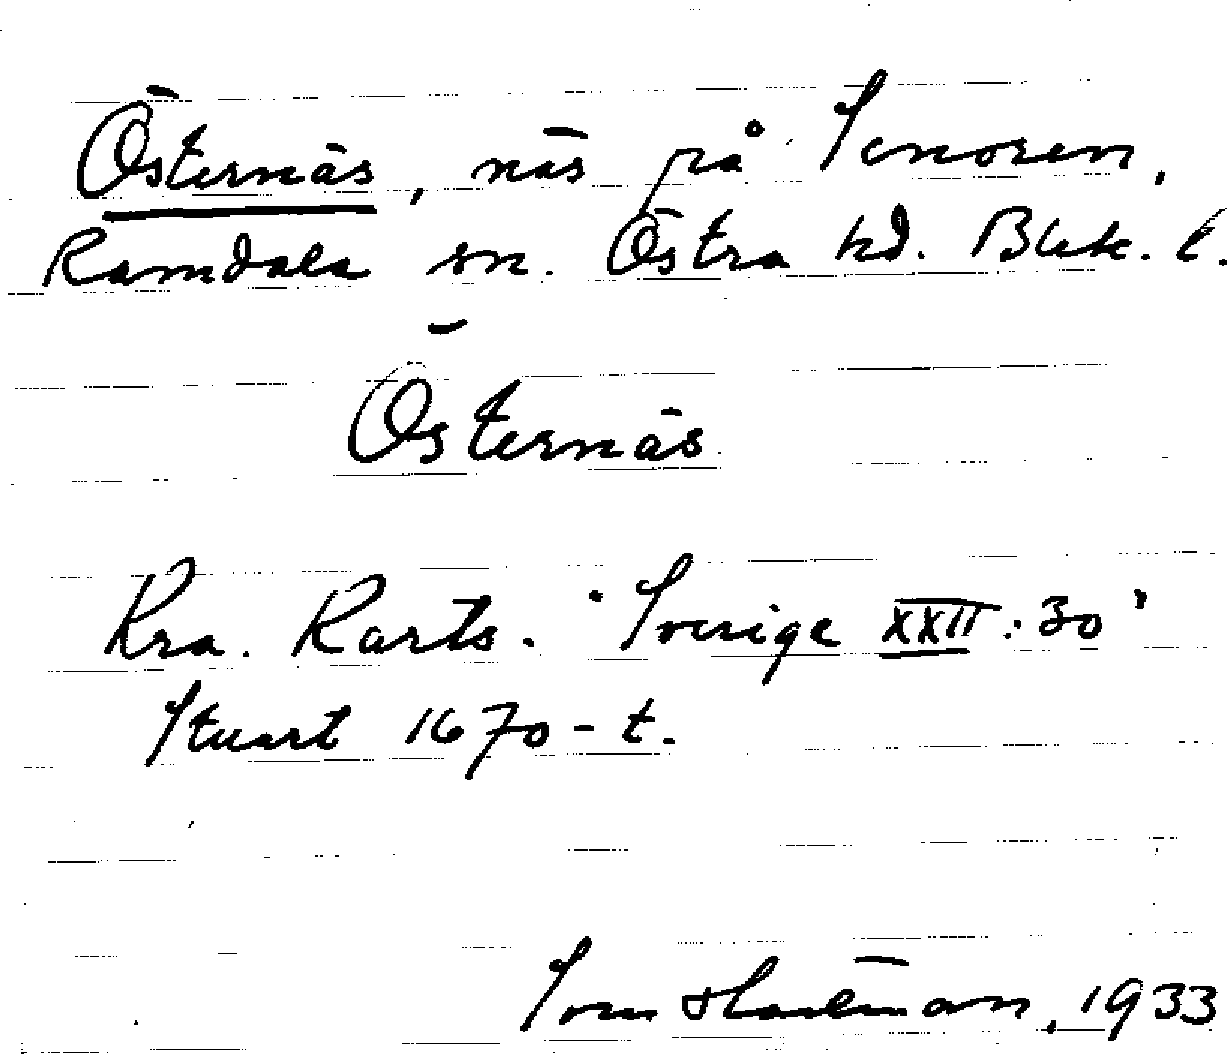 Östernäs, näs på Senoren,
Ramdala sn. Östra hd. Blek. l.
Östernäs
Kra. Karts. "Sverige XXII: 30"
Stuart 1670-t.
1933